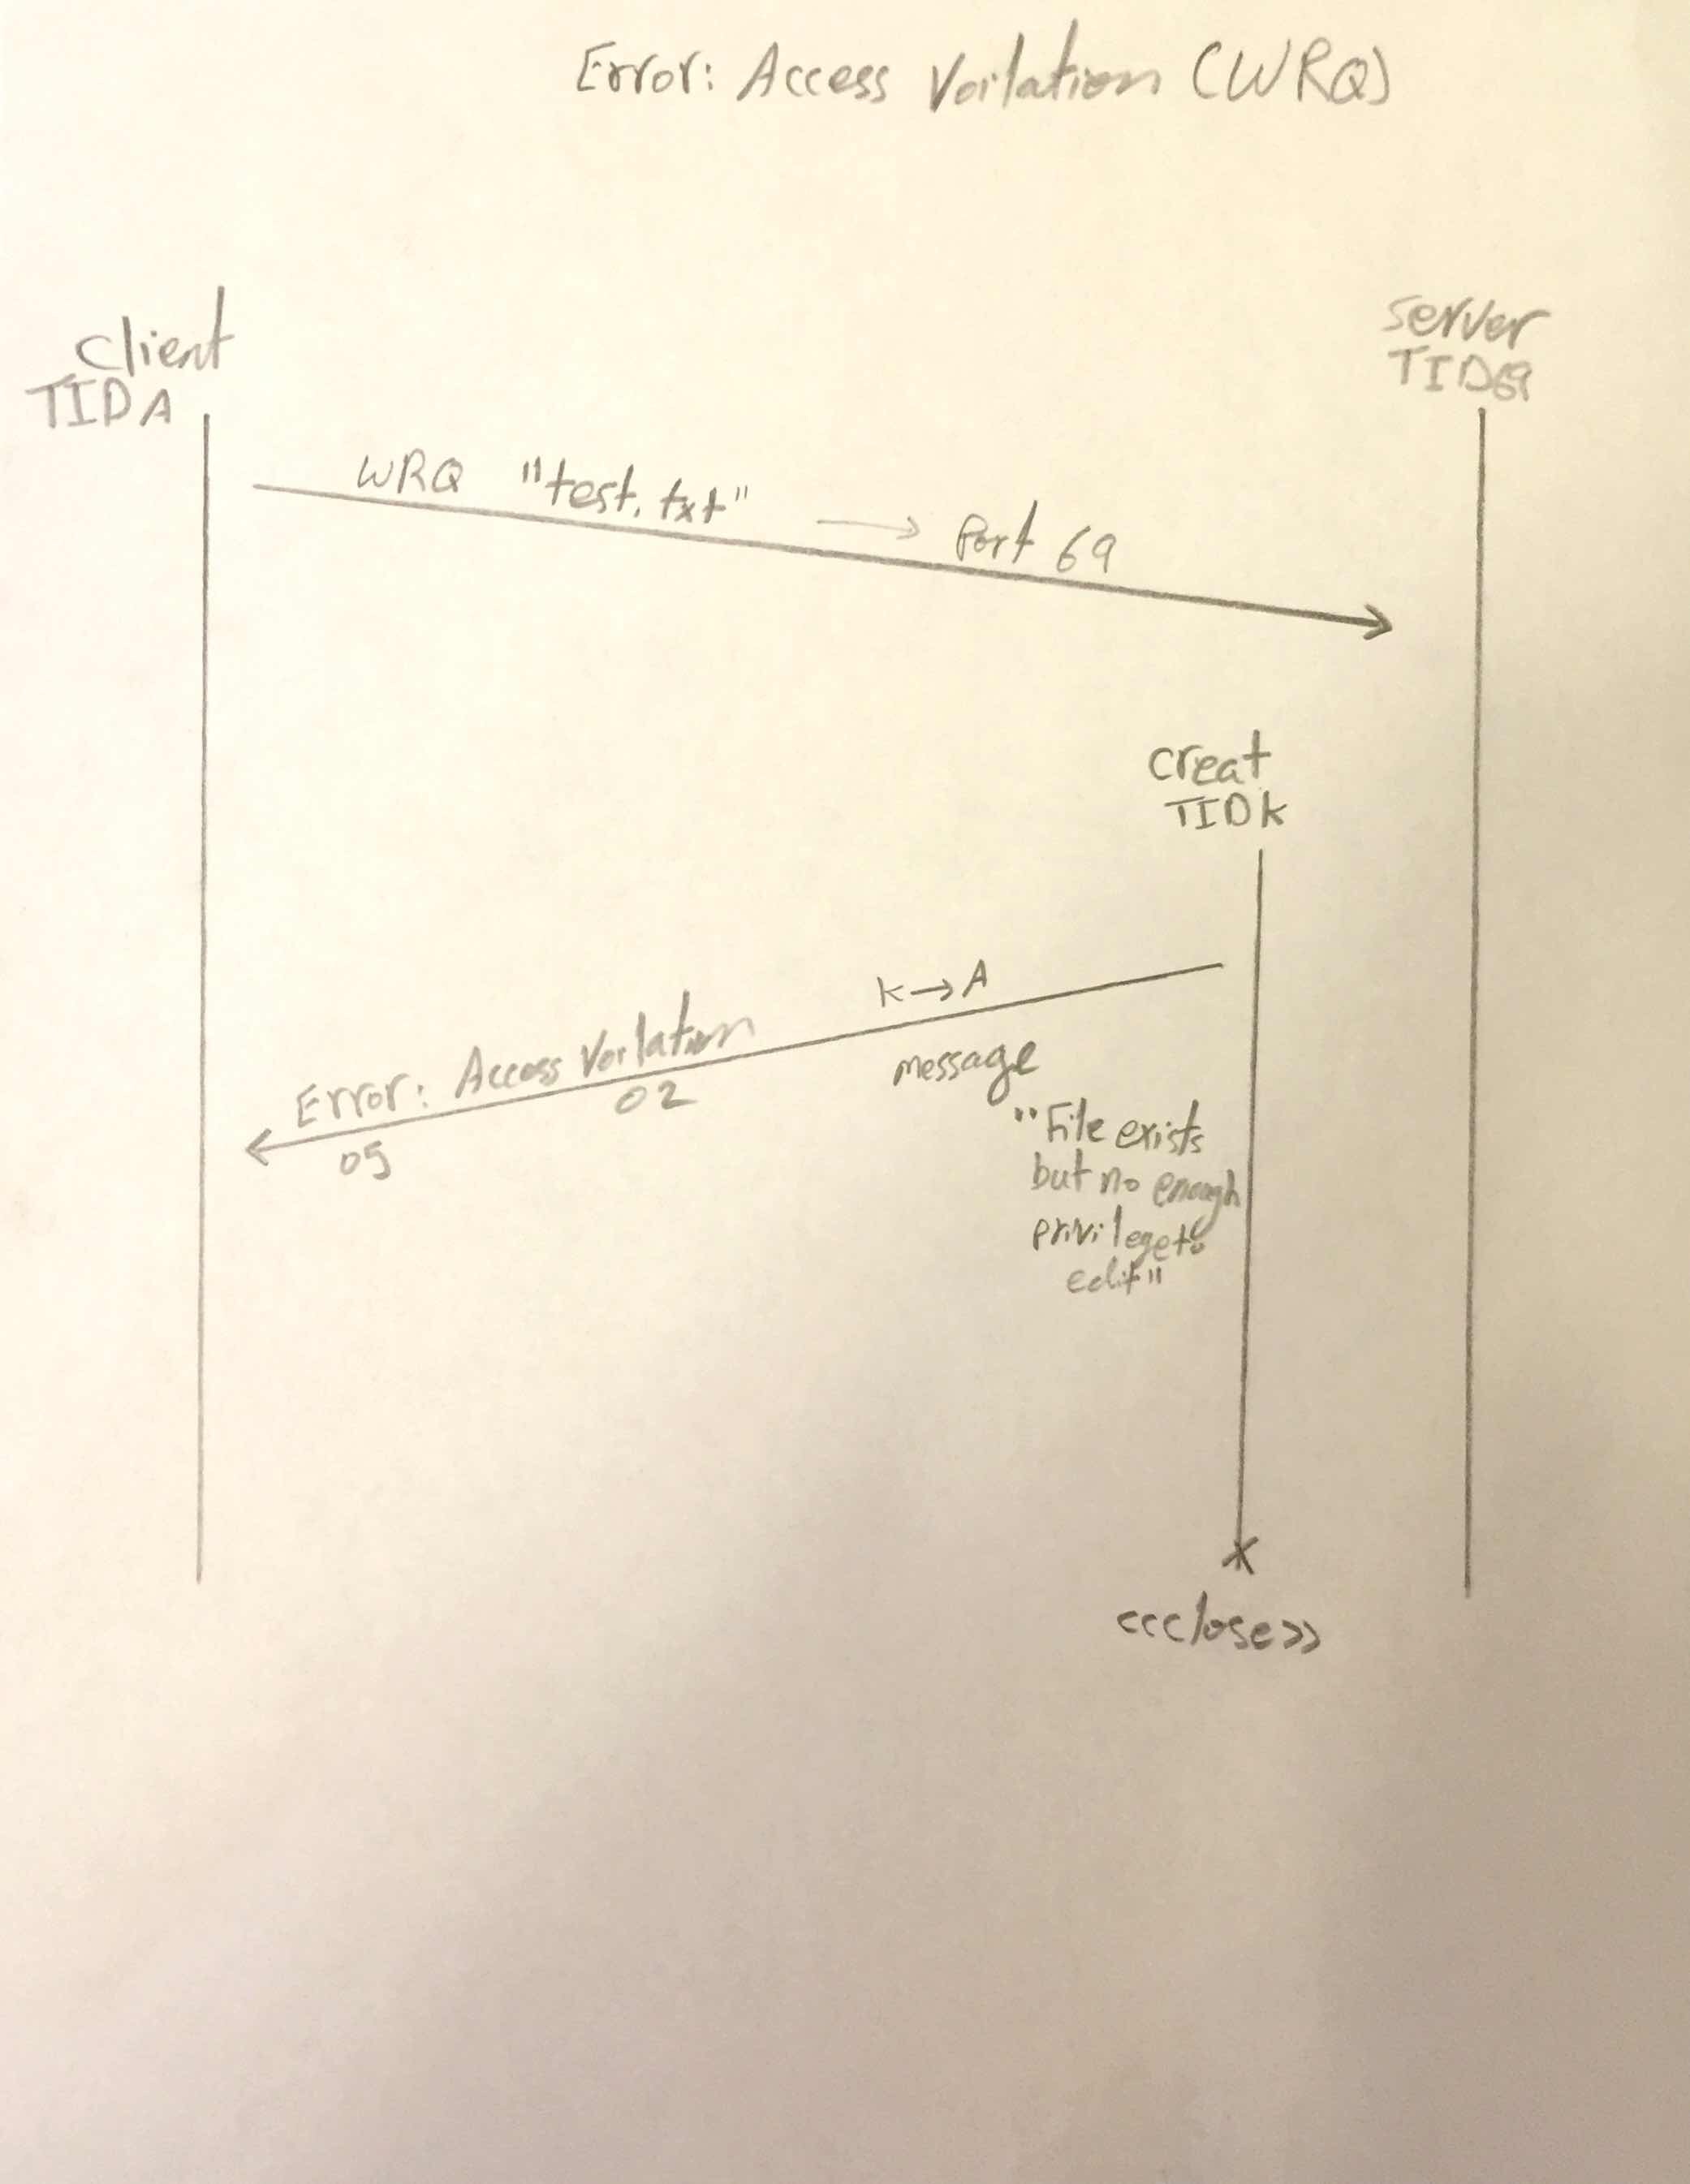 Error: Access Voilation (WRQ)
client
TID A
server
TID69
WRQ "test.txt" → Port 69
creat
TIDK
K→A
Error: Access Voilation
05 02
message
"File exists
but no enough
privilege to
edit"
<<close>>